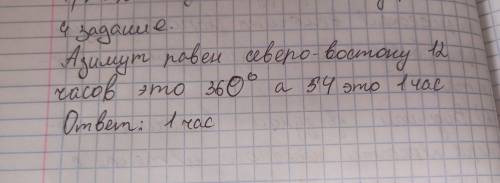 4 задание.
Азимут равен северо-востоку 12
часов это 360° а 54 это 1 час
Ответ: 1 час